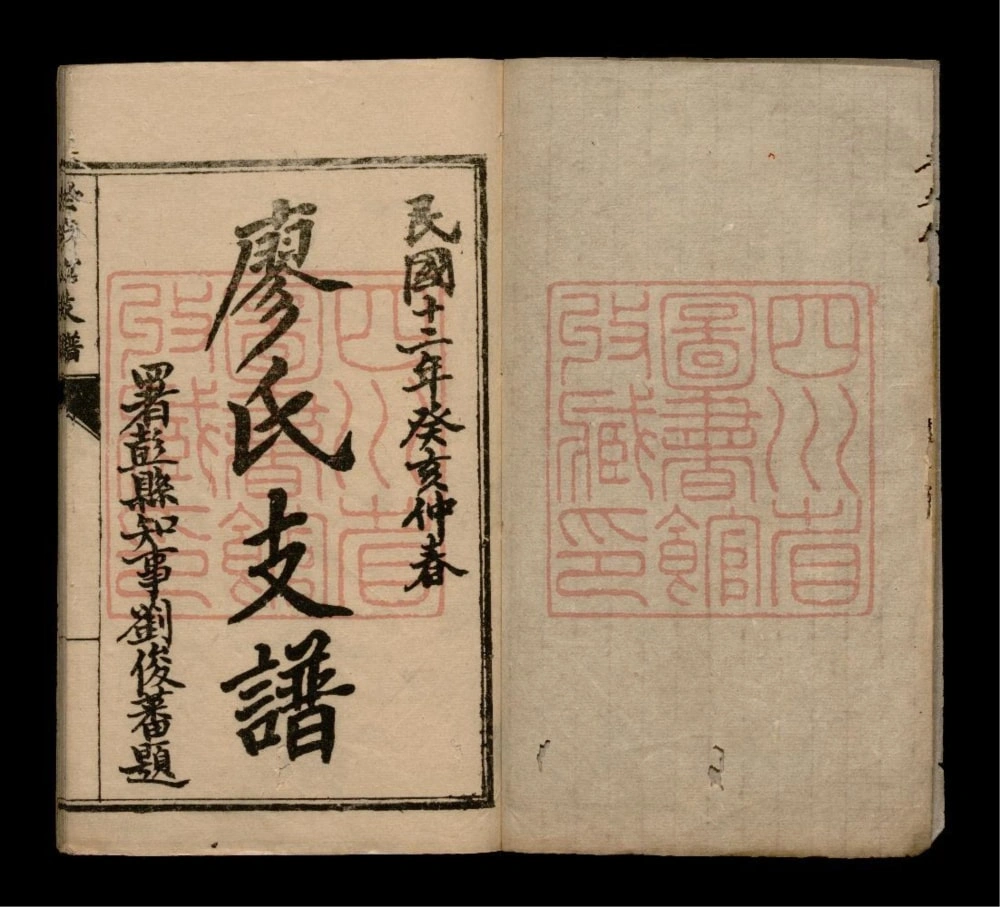 民國十二年癸亥仲春
廖氏支譜
署彭縣知事劉俊蕃題
四川省
圖書館
收藏印
四川省
圖書館
收藏印